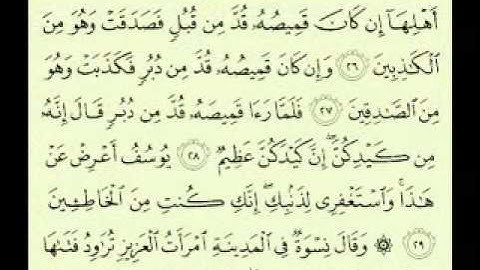 أَهْلِهَآ إِن كَانَ قَمِيصُهُۥ قُدَّ مِن قُبُلٍ فَصَدَقَتْ وَهُوَ مِنَ
ٱلْكَٰذِبِينَ ٢٦ وَإِن كَانَ قَمِيصُهُۥ قُدَّ مِن دُبُرٍ فَكَذَبَتْ وَهُوَ
مِنَ ٱلصَّٰدِقِينَ ٢٧ فَلَمَّا رَءَا قَمِيصَهُۥ قُدَّ مِن دُبُرٍ قَالَ إِنَّهُۥ
مِن كَيْدِكُنَّ ۖ إِنَّ كَيْدَكُنَّ عَظِيمٌ ٢٨ يُوسُفُ أَعْرِضْ عَنْ
هَٰذَا ۚ وَٱسْتَغْفِرِى لِذَنۢبِكِ ۖ إِنَّكِ كُنتِ مِنَ ٱلْخَاطِـِٔينَ
٢٩ ۞ وَقَالَ نِسْوَةٌ فِى ٱلْمَدِينَةِ ٱمْرَأَتُ ٱلْعَزِيزِ تُرَٰوِدُ فَتَىٰهَا